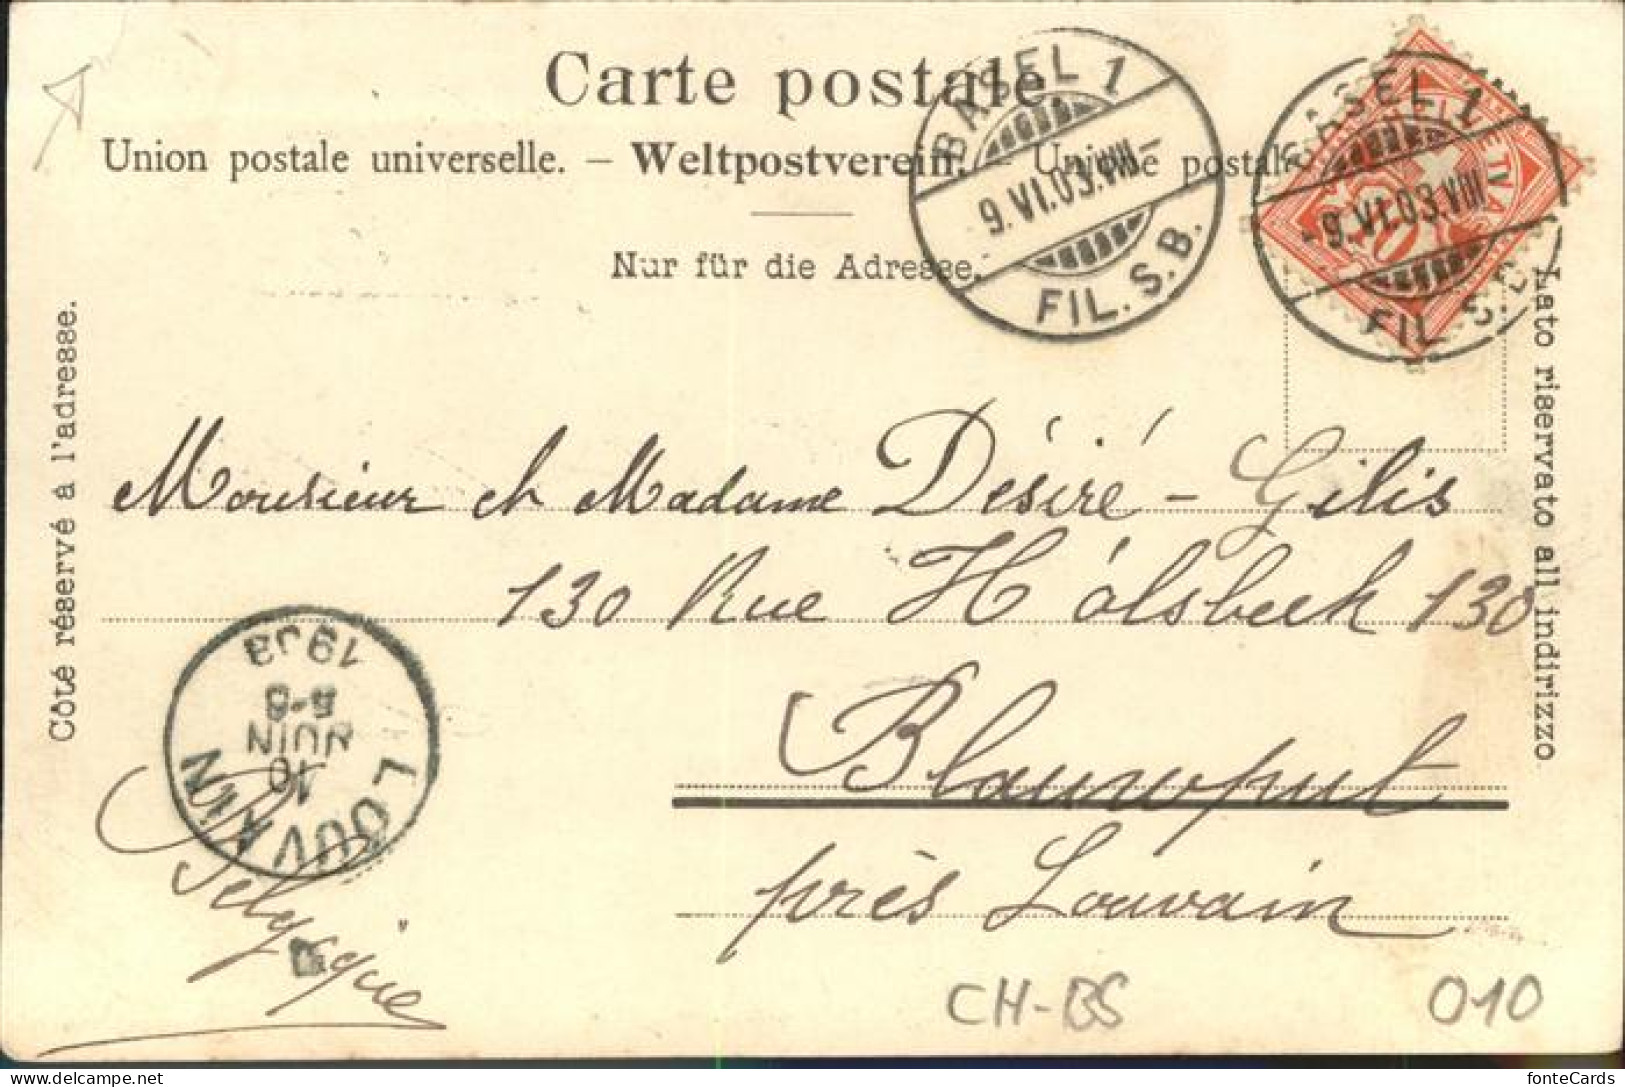 Carte postale.
Union postale universelle. — Weltpostverein. Unione postale
Nur für die Adresse.
Côté réservé à l'adresse.
Lato riservato all indirizzo
BASEL 1
9.VI.03.VIII—
FIL. S.B.
BASEL 1
-9.VI.03.VIII
FIL. S.B.
HELVETIA
10
Monsieur et Madame Désiré-Gilis
130 Rue Hólsbeek 130
Blauwput
près Louvain
Belgique
LOUVAIN
10
JUIN
1903
CH-BS
010
fonteCards